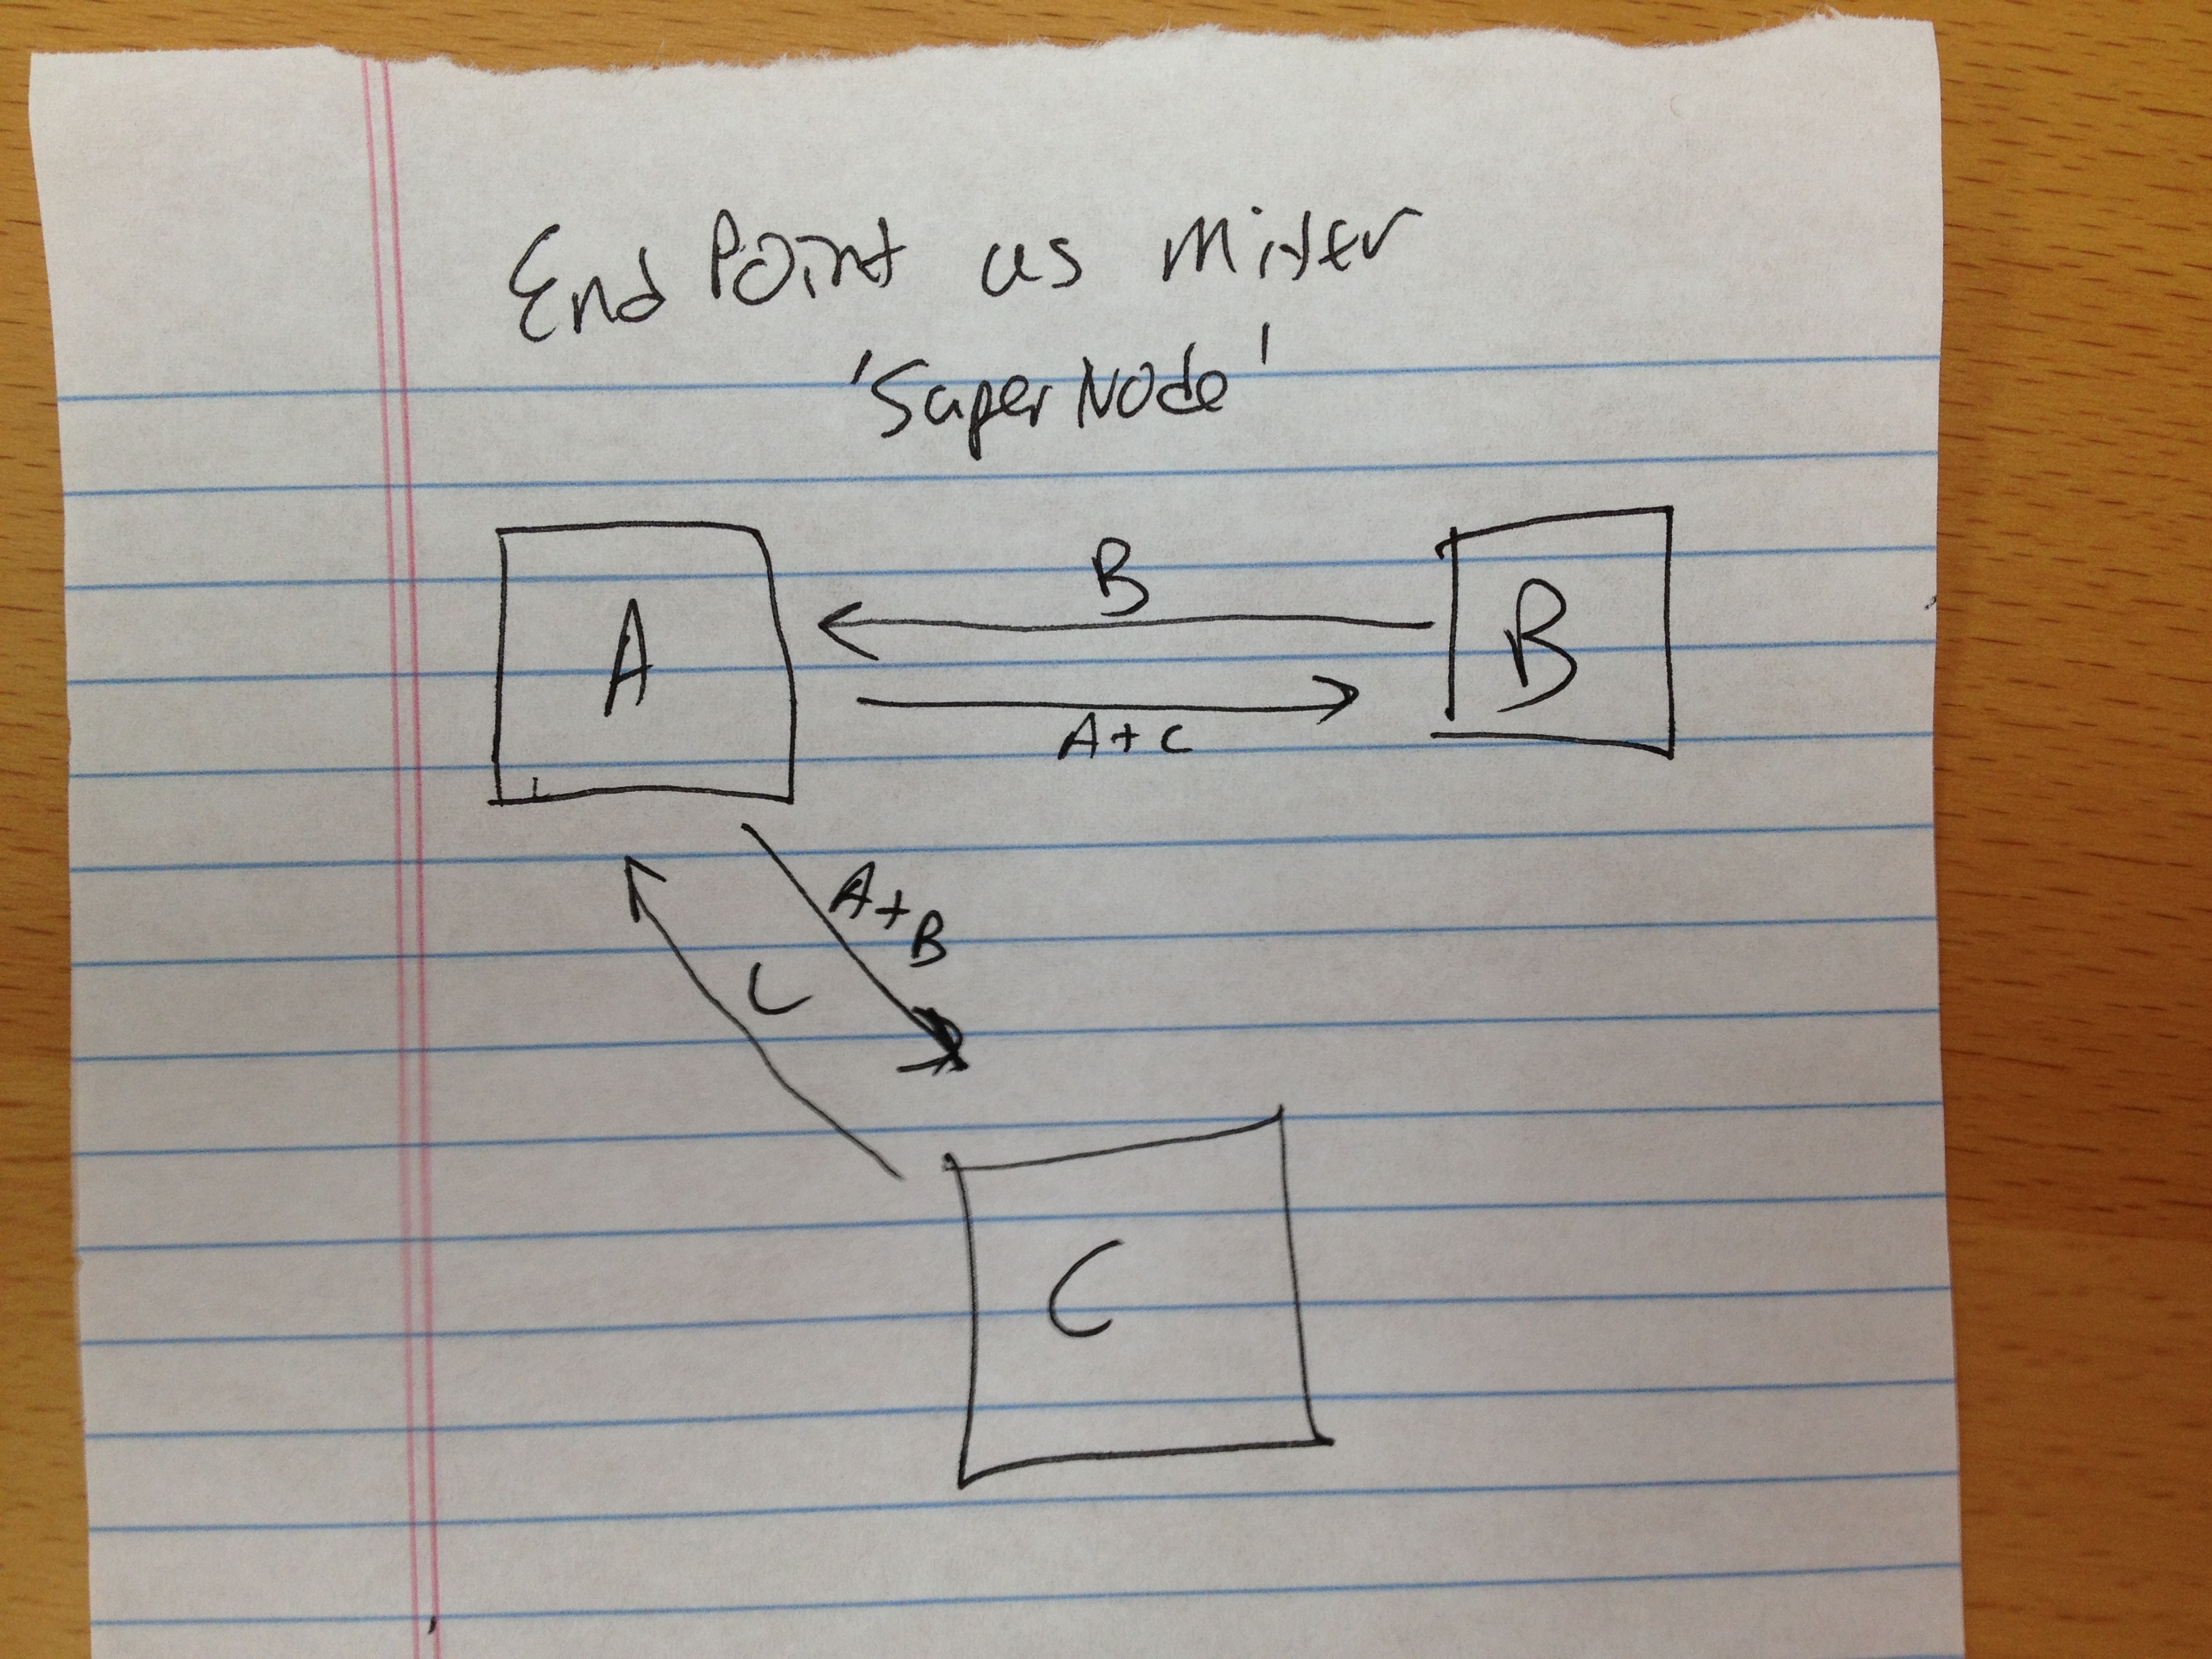 End Point as Mixer
'Super Node'
A
B
B
A+C
A+B
C
C